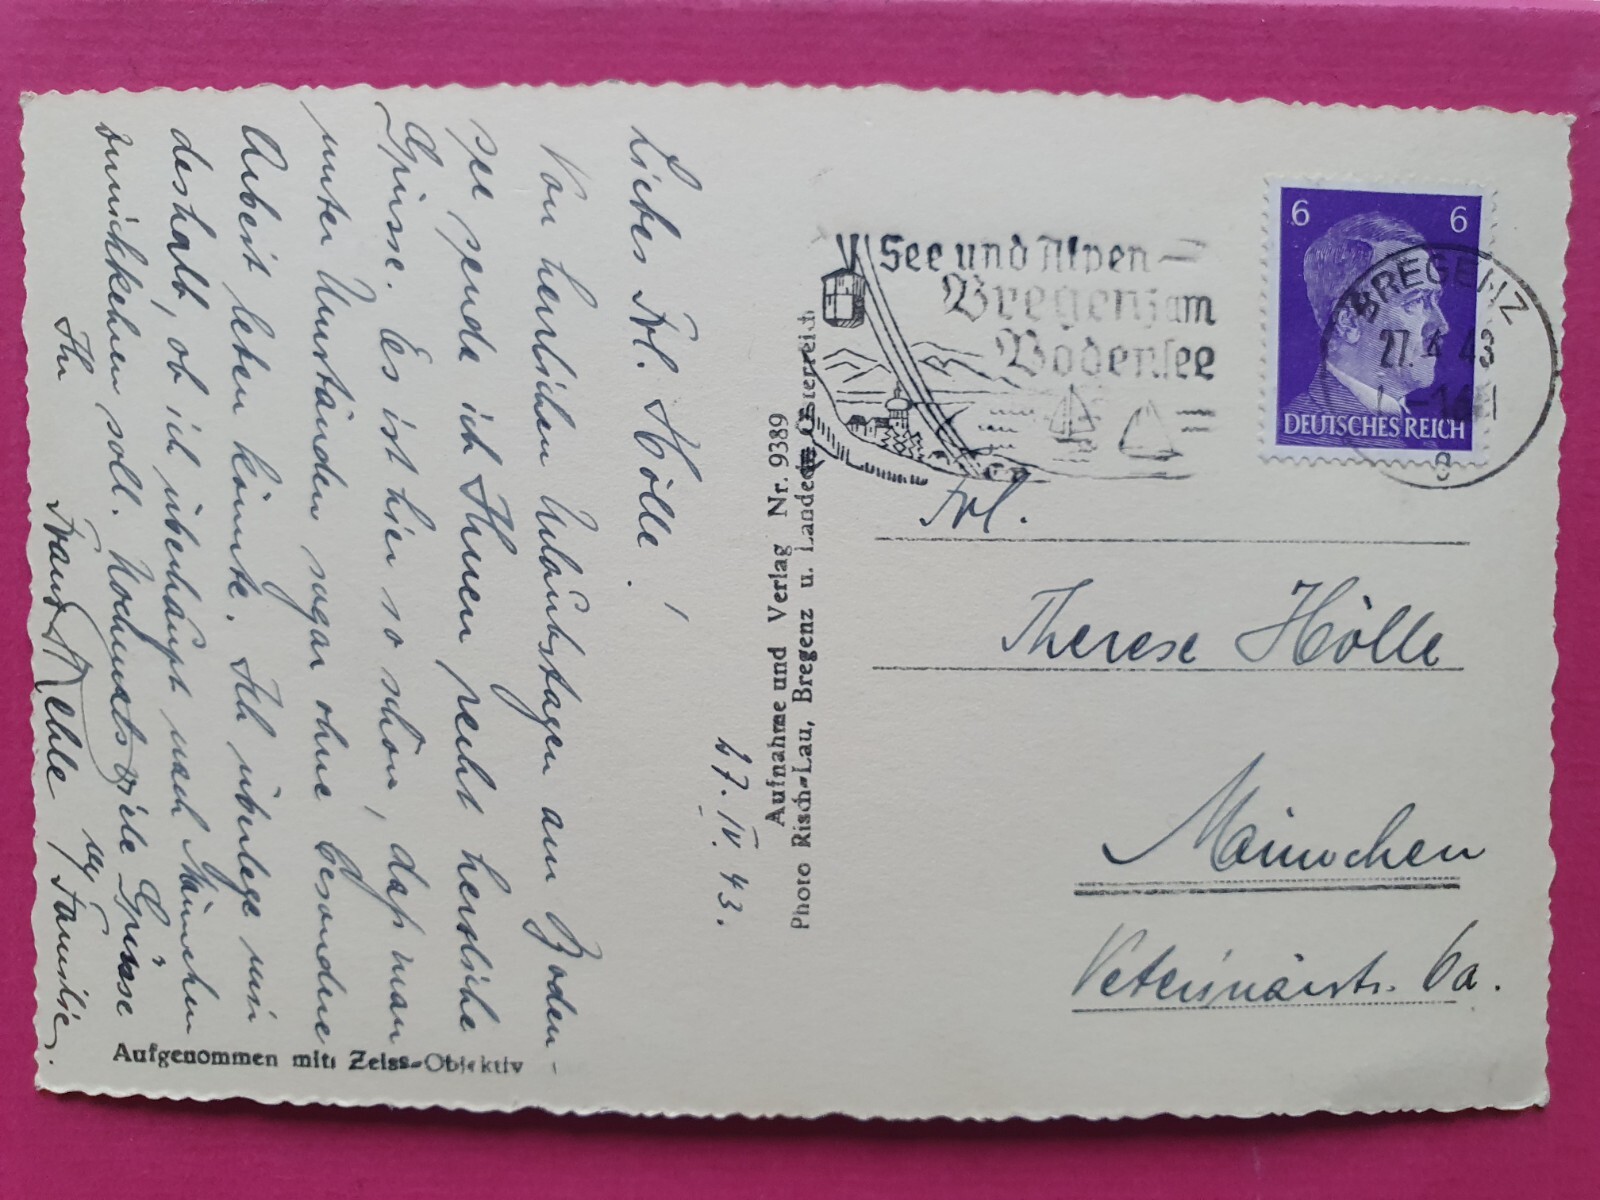 27. IV. 43.
Liebes Frl. Hölle!
Von herrlichen Urlaubstagen am Boden-
see sende ich Ihnen recht herzliche
Grüsse. Es ist hier so schön, daß man
unter Umständen sogar ohne besondere
Arbeit leben könnte. Ich überlege mir
deshalb, ob ich überhaupt nach München
zurückkehren soll. Nochmals viele Grüsse
Ihr Franz Kehle u. Familie.
Aufgenommen mit Zeiss-Objektiv
Aufnahme und Verlag Nr. 9389
Photo Risch-Lau, Bregenz u. Landeck, Österreich
See und Alpen-
Bregenz am
Bodensee
6 6
DEUTSCHES REICH
BREGENZ
27.4.43
Frl.
Therese Hölle
München
Veterinärstr. 6a.